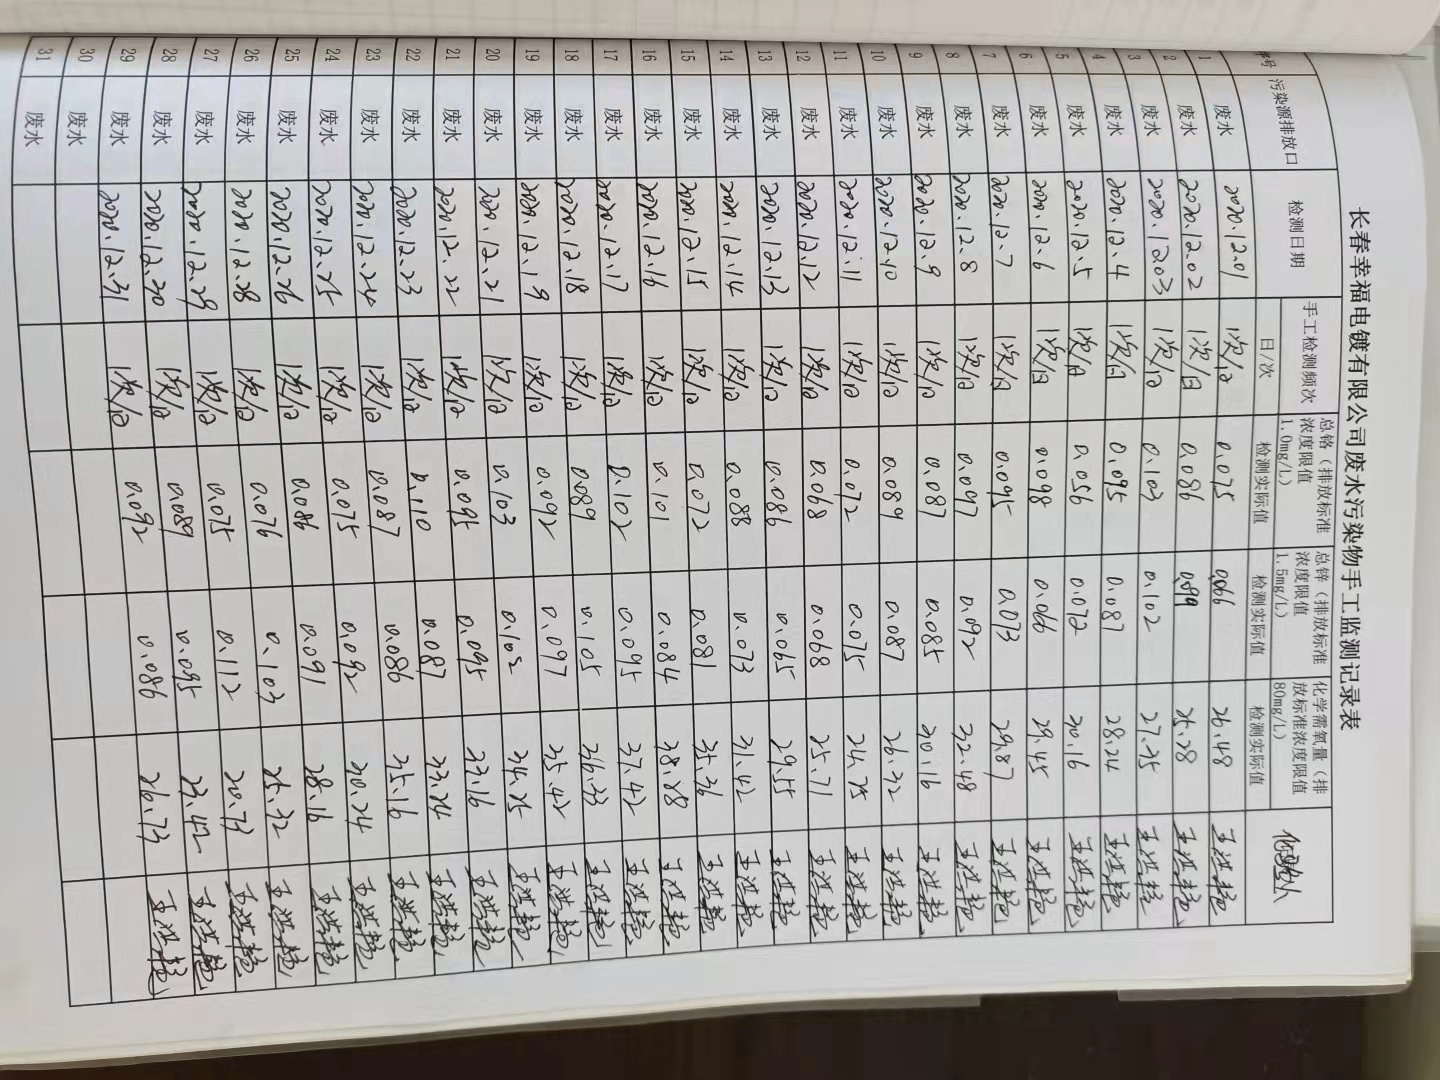 长春幸福电镀有限公司废水污染物手工监测记录表
序号 污染源排放口 检测日期 手工检测频次 日/次 总铬（排放标准浓度限值1.0mg/L）检测实际值 总锌（排放标准浓度限值1.5mg/L）检测实际值 化学需氧量（排放标准浓度限值80mg/L）检测实际值 化验人
1 废水 2020.12.01 1次/日 0.075 0.066 26.48
2 废水 2020.12.02 1次/日 0.086 0.099 25.28
3 废水 2020.12.03 1次/日 0.103 0.102 27.25
4 废水 2020.12.4 1次/日 0.095 0.087 28.24
5 废水 2020.12.5 1次/日 0.056 0.072 30.16
6 废水 2020.12.6 1次/日 0.098 0.066 29.45
7 废水 2020.12.7 1次/日 0.095 0.073 29.87
8 废水 2020.12.8 1次/日 0.097 0.092 32.48
9 废水 2020.12.9 1次/日 0.087 0.085 30.16
10 废水 2020.12.10 1次/日 0.089 0.087 26.32
11 废水 2020.12.11 1次/日 0.072 0.075 24.75
12 废水 2020.12.12 1次/日 0.068 0.068 25.71
13 废水 2020.12.13 1次/日 0.086 0.065 29.55
14 废水 2020.12.14 1次/日 0.088 0.073 31.42
15 废水 2020.12.15 1次/日 0.072 0.081 35.36
16 废水 2020.12.16 1次/日 0.101 0.084 38.88
17 废水 2020.12.17 1次/日 0.102 0.095 37.42
18 废水 2020.12.18 1次/日 0.089 0.105 36.33
19 废水 2020.12.19 1次/日 0.092 0.097 35.42
20 废水 2020.12.21 1次/日 0.103 0.102 34.25
21 废水 2020.12.22 1次/日 0.095 0.095 37.16
22 废水 2020.12.23 1次/日 0.110 0.087 33.24
23 废水 2020.12.24 1次/日 0.087 0.086 35.16
24 废水 2020.12.25 1次/日 0.075 0.092 30.24
25 废水 2020.12.26 1次/日 0.086 0.091 28.16
26 废水 2020.12.28 1次/日 0.076 0.103 25.32
27 废水 2020.12.29 1次/日 0.075 0.112 20.73
28 废水 2020.12.30 1次/日 0.089 0.095 23.42
29 废水 2020.12.31 1次/日 0.092 0.086 26.73
30 废水
31 废水